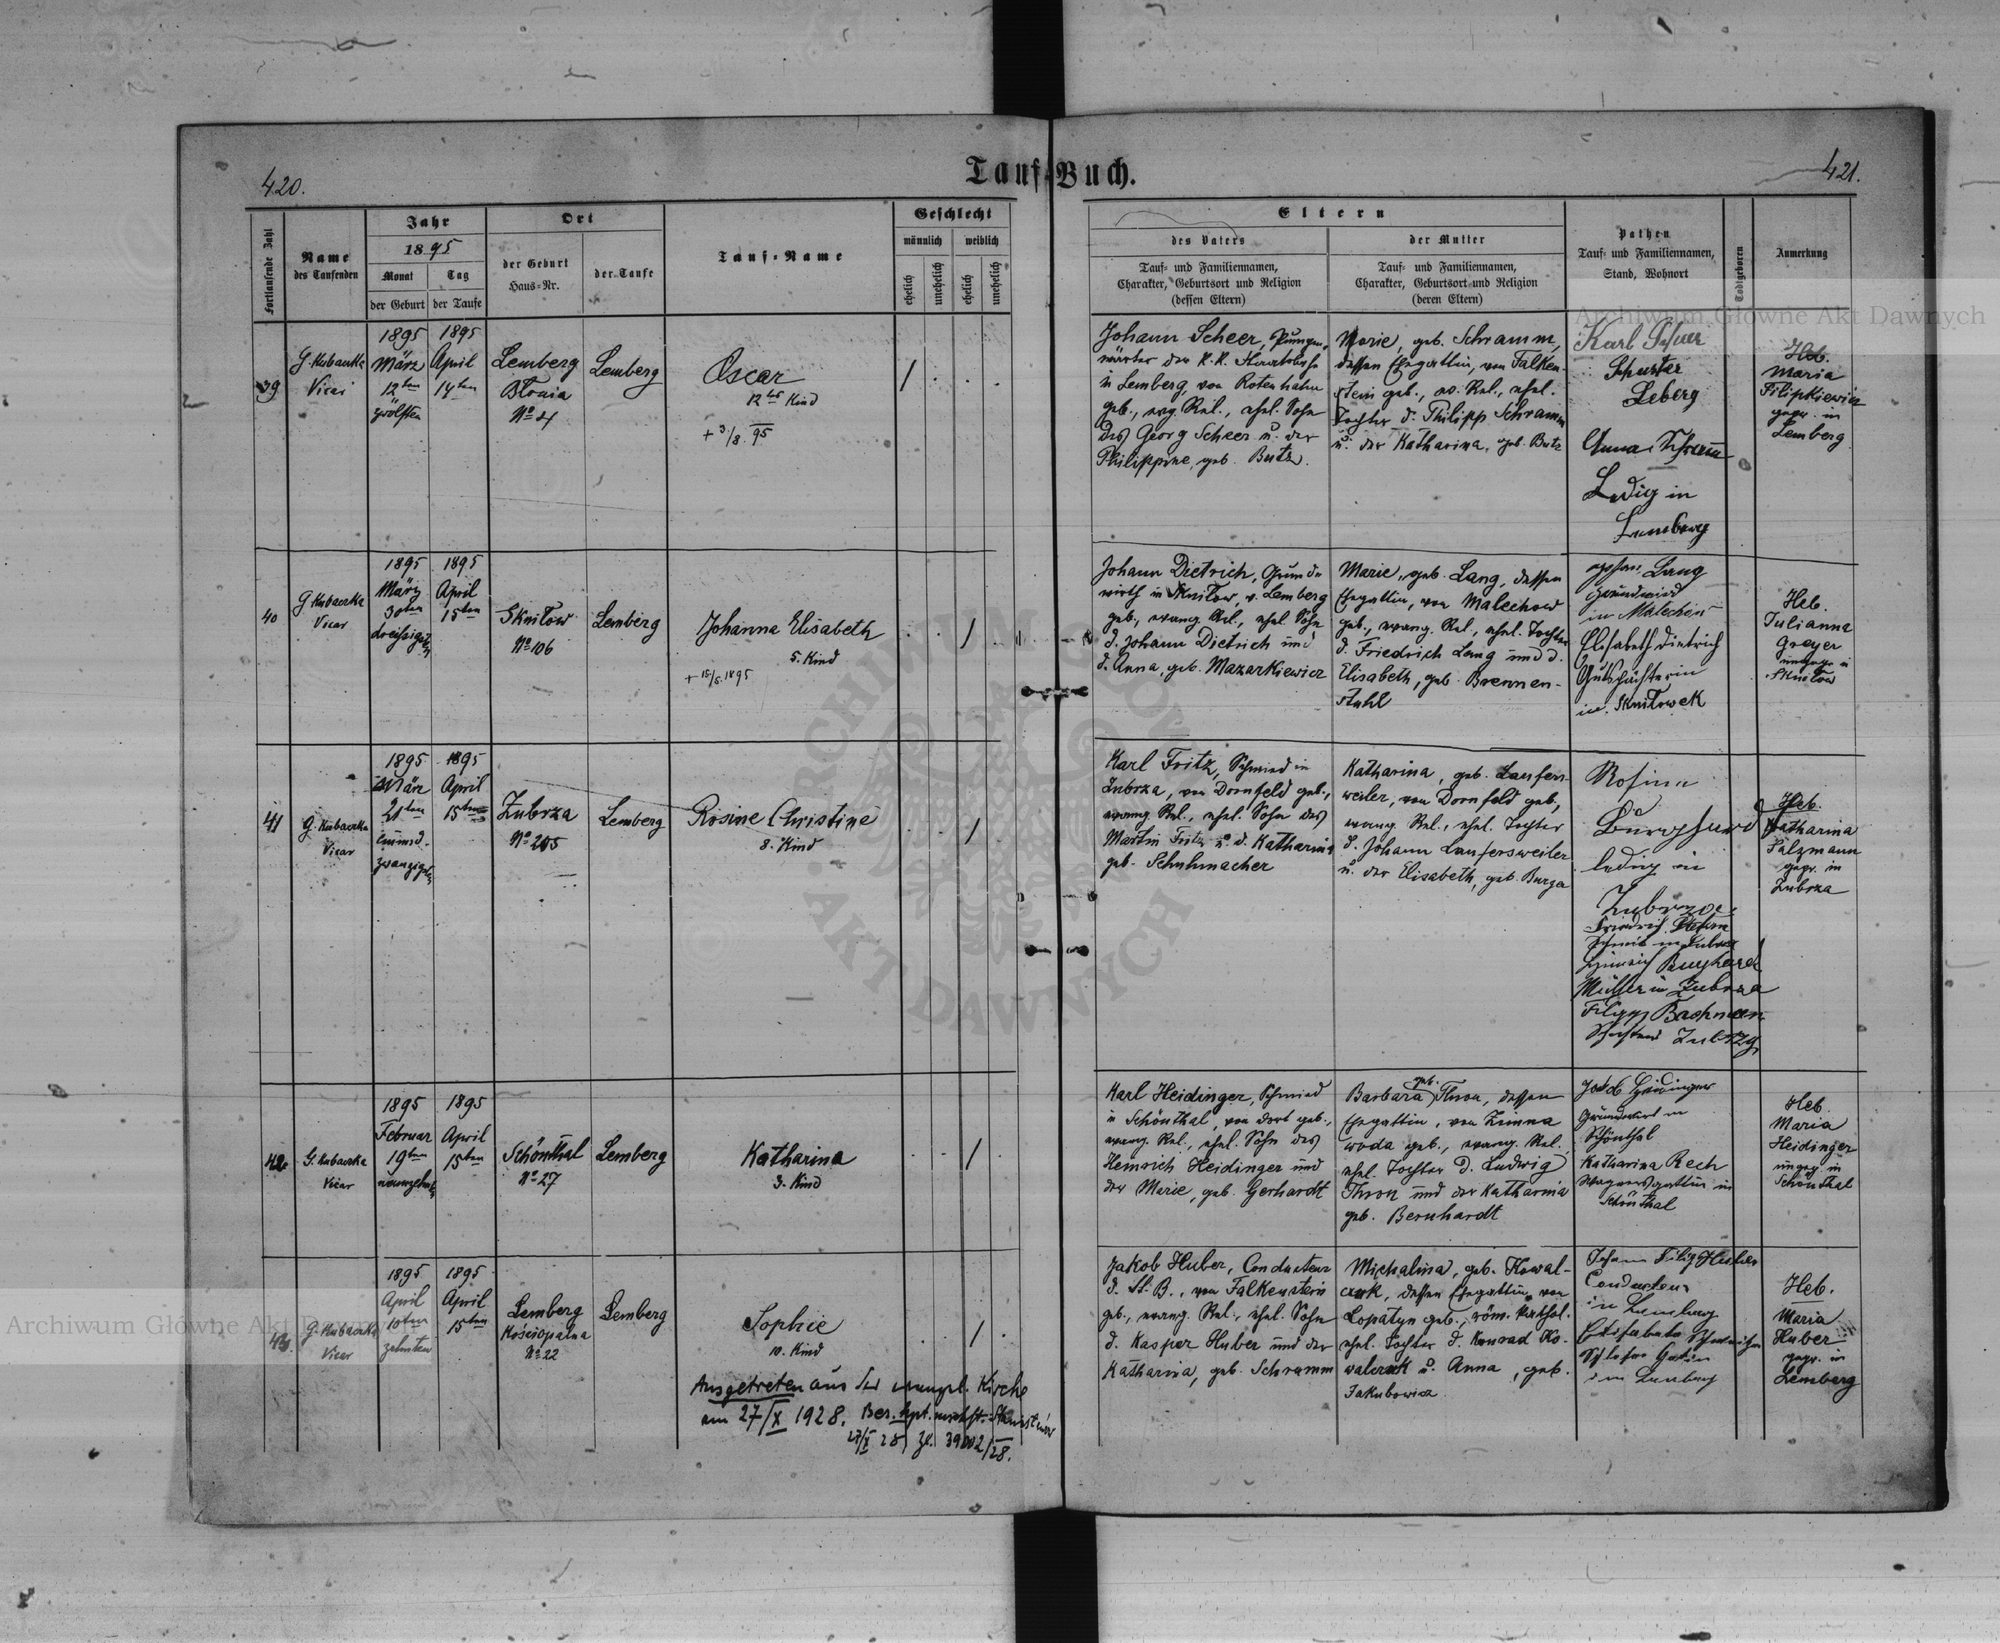 420.
Tauf-Buch.
421.
Fortlaufende Zahl
Name
des Taufenden
Jahr
1895
Monat
Tag
der Geburt
der Taufe
Ort
der Geburt
Haus-Nr.
der Taufe
Tauf-Name
Geschlecht
männlich
weiblich
ehelich
unehelich
ehelich
unehelich
Eltern
des Vaters
Tauf- und Familiennamen,
Charakter, Geburtsort und Religion
(dessen Eltern)
der Mutter
Tauf- und Familiennamen,
Charakter, Geburtsort und Religion
(deren Eltern)
Pathen
Tauf- und Familiennamen,
Stand, Wohnort
Todtgeboren
Anmerkung
39
G. Kubaczka
Vicar
1895
März
12ten
zwölften
1895
April
14ten
Lemberg
Błonia
No 4
Lemberg
Oscar
12tes Kind
+ 3/8. 95
Johann Scheer,
wärter der K.K. Staatsbahn
in Lemberg, von Rotenhahn
geb., evg. Rel., ehel. Sohn
des Georg Scheer u. der
Philippine, geb. Butz.
Marie, geb. Schramm,
dessen Ehegattin, von Falken-
stein geb., ev. Rel., ehel.
Tochter d. Philipp Schramm
u. der Katharina, geb. Butz
Karl Scheer
Schuster
Leberg
Anna Schramm
Ledig in
Lemberg
Heb.
Maria
Filipkiewicz
gepr. in
Lemberg
40
G. Kubaczka
Vicar
1895
März
30ten
dreissigsten
1895
April
15ten
Skniłow
No 106
Lemberg
Johanna Elisabeth
5. Kind
+ 15/5. 1895
Johann Dietrich, Grund-
wirth in Skniłow, v. Lemberg
geb., evang. Rel., ehel. Sohn
d. Johann Dietrich und
d. Anna, geb. Mazarkiewicz
Marie, geb. Lang, dessen
Ehegattin, von Malechow
geb., evang. Rel., ehel. Tochter
d. Friedrich Lang und d.
Elisabeth, geb. Brennen-
stuhl
Johan Lang
Grundwirt
in Malechow
Elisabeth Dietrich
Gutspächterin
in Skniłowek
Heb.
Julianna
Greyer
ungepr. in
Skniłow
41
G. Kubaczka
Vicar
1895
März
21ten
einund-
zwanzigsten
1895
April
15ten
Zubrza
No 205
Lemberg
Rosine Christine
8. Kind
Karl Fritz, Schmied in
Zubrza, von Dornfeld geb.,
evang. Rel., ehel. Sohn des
Martin Fritz u. d. Katharina
geb. Schuhmacher
Katharina, geb. Laufers-
weiler, von Dornfeld geb.,
evang. Rel., ehel. Tochter
d. Johann Laufersweiler
u. der Elisabeth, geb. Burger
Rosina
Burghard
ledig in
Zubrza
Friedrich
Schmied in Zubrza
Heinrich Burghard
Müller in Zubrza
Filipp Bachmann
Zubrza
Heb.
Katharina
Salzmann
gepr. in
Zubrza
42
G. Kubaczka
Vicar
1895
Februar
19ten
neunzehnten
1895
April
15ten
Schönthal
No 27
Lemberg
Katharina
3. Kind
Karl Heidinger, Schmied
in Schönthal, von dort geb.,
evang. Rel., ehel. Sohn des
Heinrich Heidinger und
der Marie, geb. Gerhardt
Barbara geb. Thron, dessen
Ehegattin, von Zimna
woda geb., evang. Rel.
ehel. Tochter d. Ludwig
Thron und der Katharina
geb. Bernhardt
Jakob Heidinger
Grundwirt in
Schönthal
Katharina Rech
Wagnersgattin in
Schönthal
Heb.
Maria
Heidinger
ungepr. in
Schönthal
43
G. Kubaczka
Vicar
1895
April
10ten
zehnten
1895
April
15ten
Lemberg
Kościopalna
No 22
Lemberg
Sophie
10. Kind
Ausgetreten aus der evangel. Kirche
am 27/X 1928. Ber.
27/X 28, Zl. 39002/28.
Jakob Huber, Conducteur
d. St. B., von Falkenstein
geb., evang. Rel., ehel. Sohn
d. Kasper Huber und der
Katharina, geb. Schramm
Michalina, geb. Kowal-
czuk, dessen Ehegattin, von
Lopatyn geb., röm. kathol.
ehel. Tochter d. Konrad Ko-
walczuk u. Anna, geb.
Jakubowicz
Johann Filip Huber
Conducteur
in Lemberg
Elisabeth
in Lemberg
Heb.
Maria
Huber
gepr. in
Lemberg
Archiwum Główne Akt Dawnych
Archiwum Główne Akt Dawnych
ARCHIWUM GŁÓWNE
AKT DAWNYCH